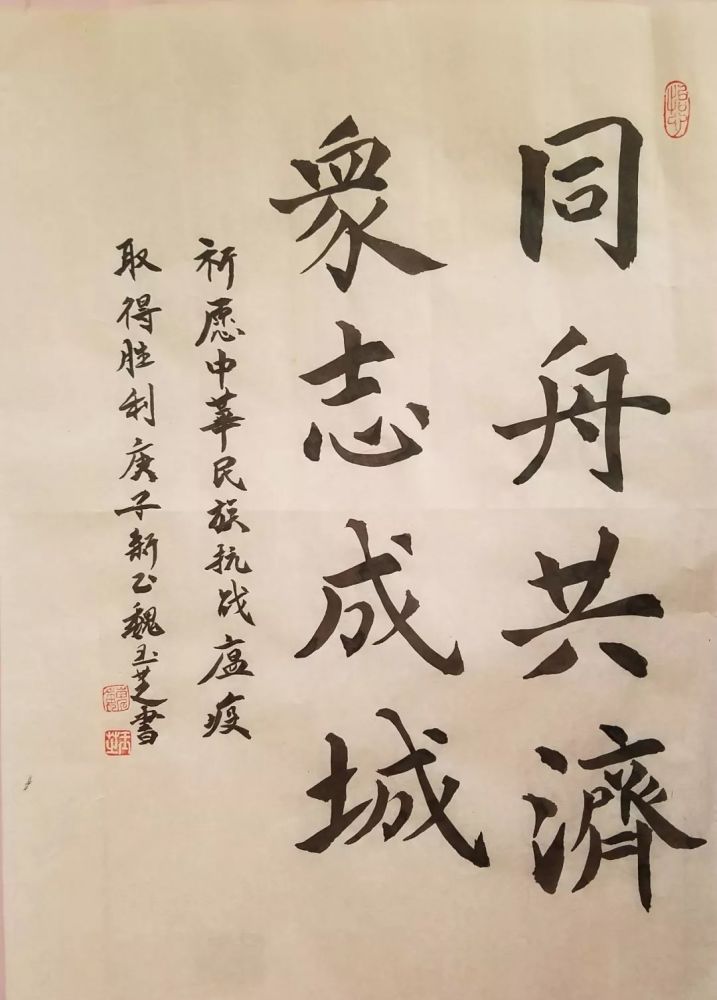 同舟共濟
衆志成城
祈愿中華民族抗战瘟疫
取得胜利庚子新正魏玉芝書